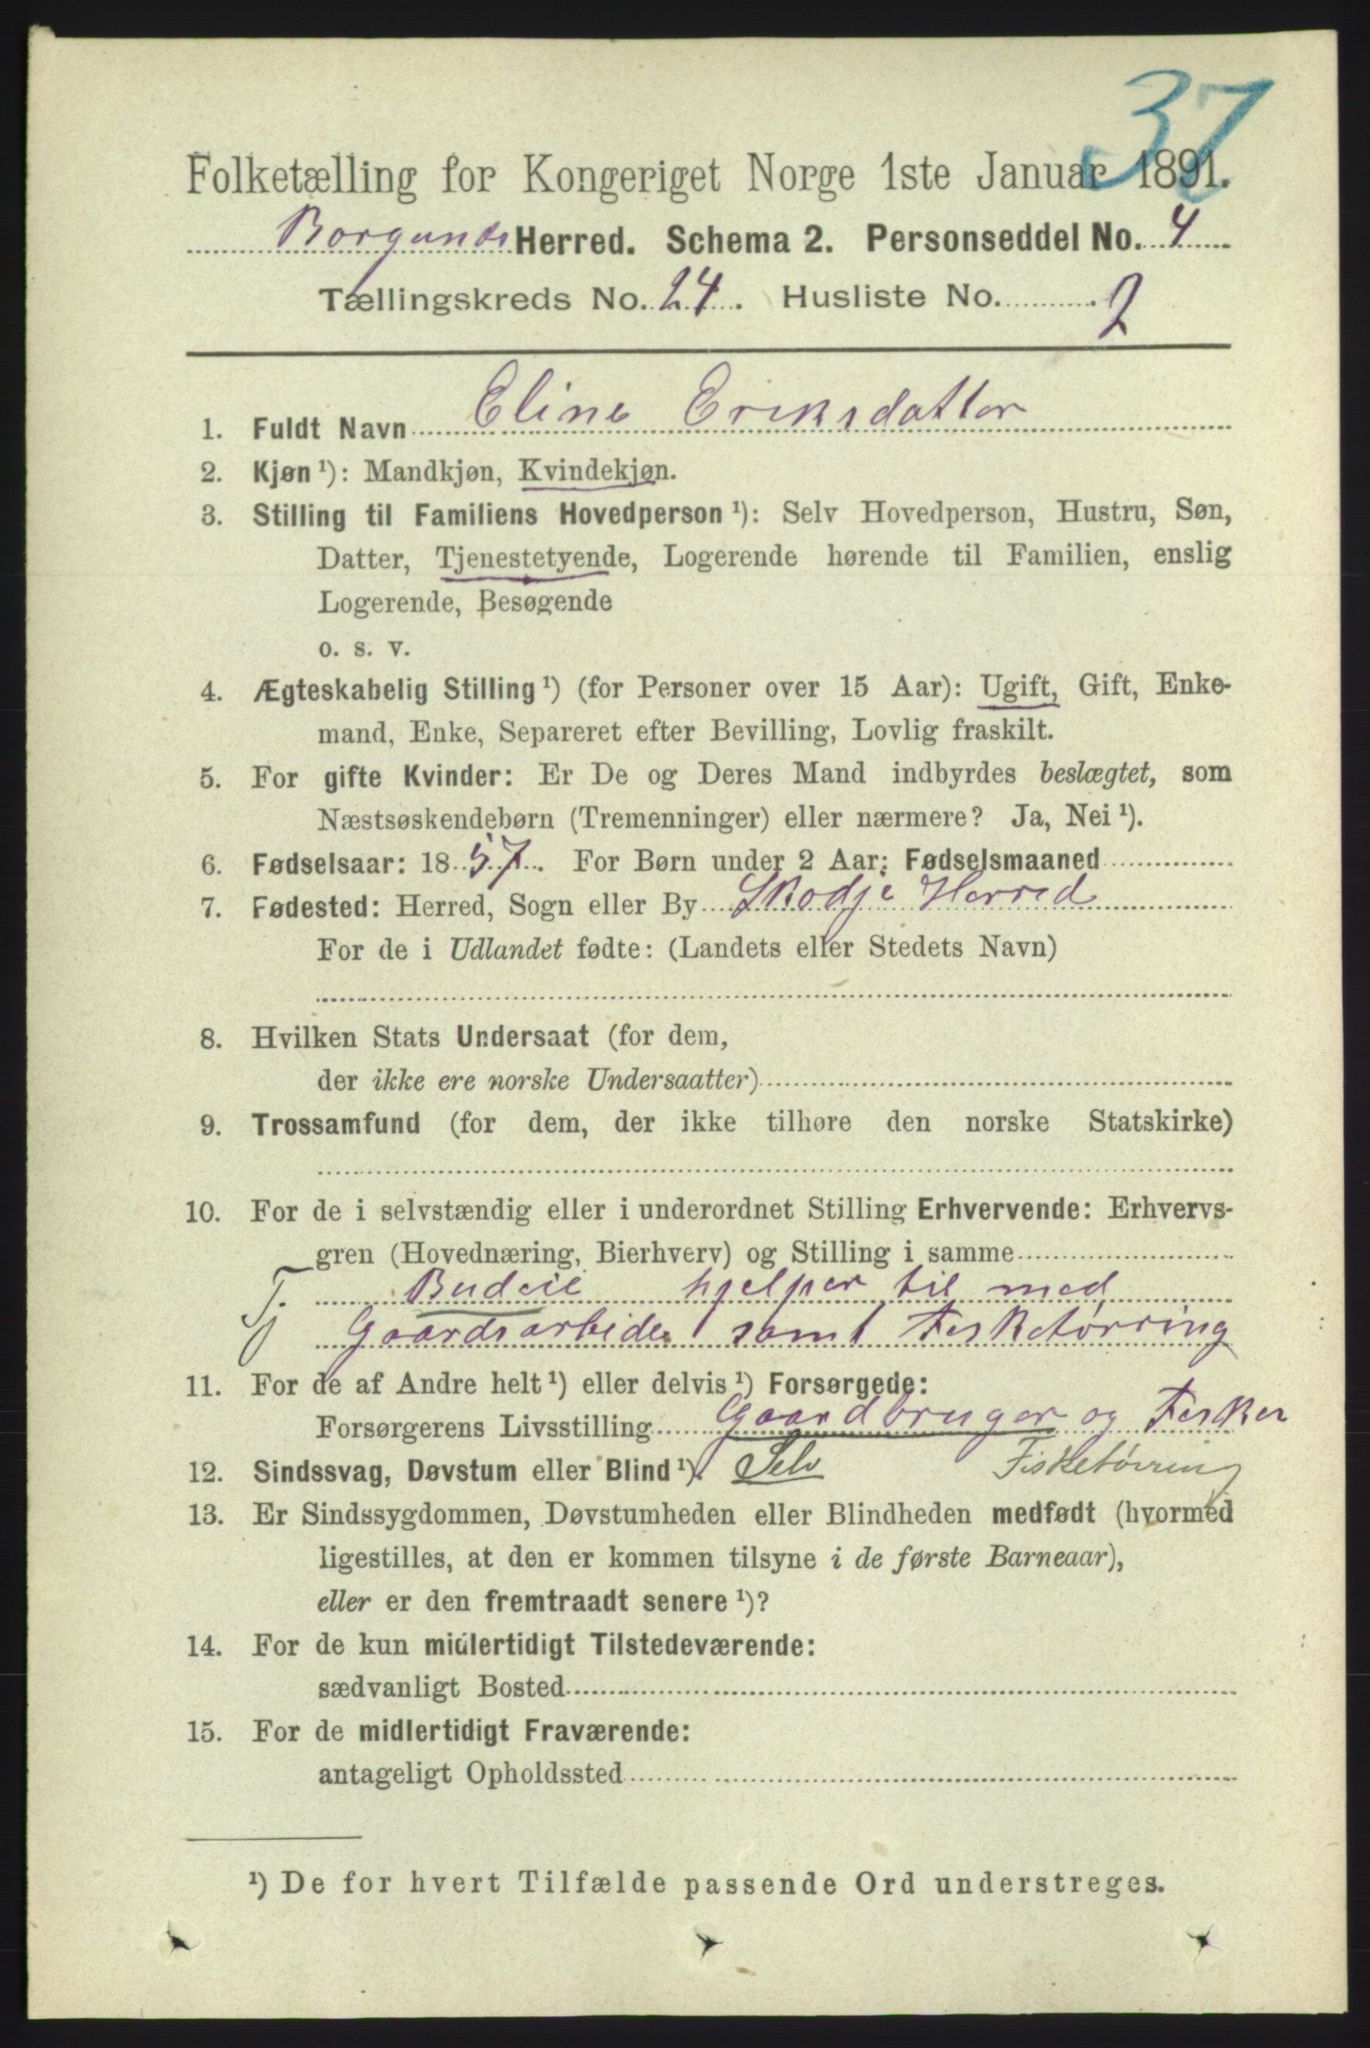 37
Folketælling for Kongeriget Norge 1ste Januar 1891.
Borgunds Herred. Schema 2. Personseddel No. 4
Tællingskreds No. 24. Husliste No. 2
1. Fuldt Navn Eline Eriksdatter
2. Kjøn ¹): Mandkjøn, Kvindekjøn.
3. Stilling til Familiens Hovedperson ¹): Selv Hovedperson, Hustru, Søn,
Datter, Tjenestetyende, Logerende hørende til Familien, enslig
Logerende, Besøgende
o. s. v.
4. Ægteskabelig Stilling ¹) (for Personer over 15 Aar): Ugift, Gift, Enke-
mand, Enke, Separeret efter Bevilling, Lovlig fraskilt.
5. For gifte Kvinder: Er De og Deres Mand indbyrdes beslægtet, som
Næstsøskendebørn (Tremenninger) eller nærmere? Ja, Nei ¹).
6. Fødselsaar: 1857. For Børn under 2 Aar: Fødselsmaaned
7. Fødested: Herred, Sogn eller By Skodje Herred
For de i Udlandet fødte: (Landets eller Stedets Navn)
8. Hvilken Stats Undersaat (for dem,
der ikke ere norske Undersaatter)
9. Trossamfund (for dem, der ikke tilhøre den norske Statskirke)
10. For de i selvstændig eller i underordnet Stilling Erhvervende: Erhvervs-
gren (Hovednæring, Bierhverv) og Stilling i samme
Tj. Budeie hjelper til med
Gaardsarbide samt Fesketørring
11. For de af Andre helt ¹) eller delvis ¹) Forsørgede:
Forsørgerens Livsstilling Gaardbruger og Fesker
12. Sindssvag, Døvstum eller Blind ¹). Selv Fisketørring
13. Er Sindssygdommen, Døvstumheden eller Blindheden medfødt (hvormed
ligestilles, at den er kommen tilsyne i de første Barneaar),
eller er den fremtraadt senere ¹)?
14. For de kun midlertidigt Tilstedeværende:
sædvanligt Bosted
15. For de midlertidigt Fraværende:
antageligt Opholdssted
¹) De for hvert Tilfælde passende Ord understreges.